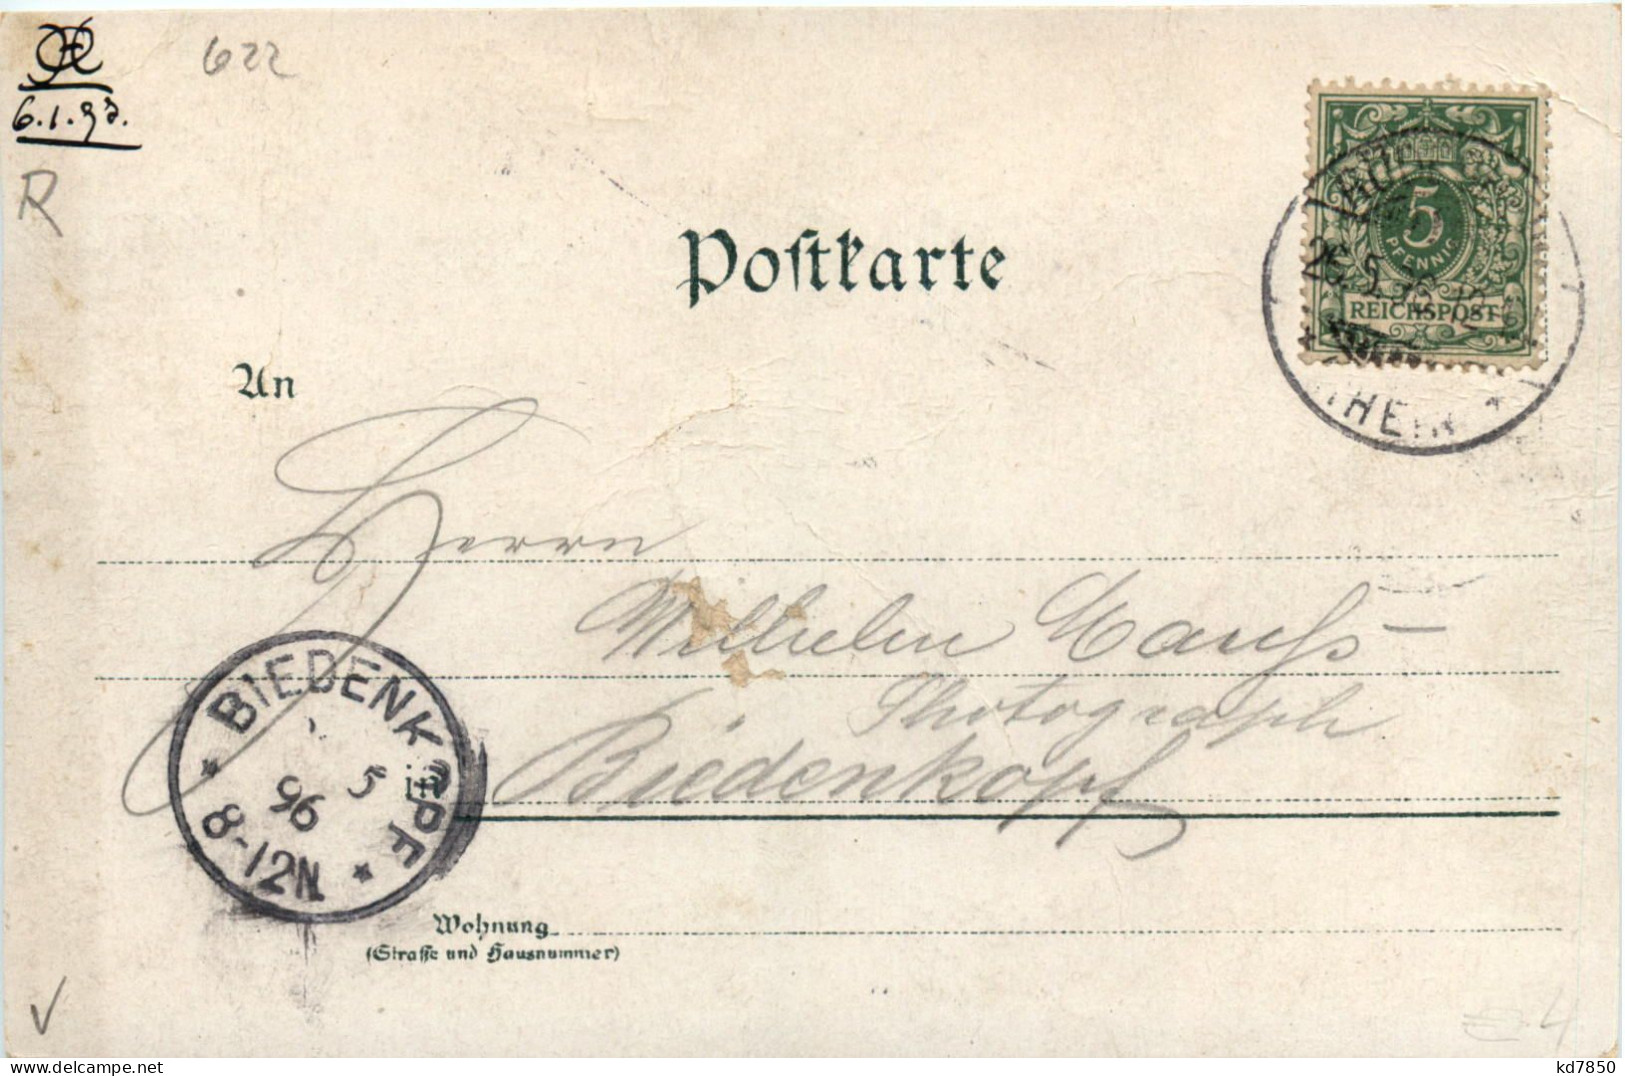 622
6.1.93.
R
Postkarte
5
PFENNIG
REICHSPOST
26.5.96.12
An
Herrn
Wilhelm Maufs
Photograph
in Biedenkopf
BIEDENKOPF
5
96
8-12N.
Wohnung
(Straße und Hausnummer)
4
kd7850